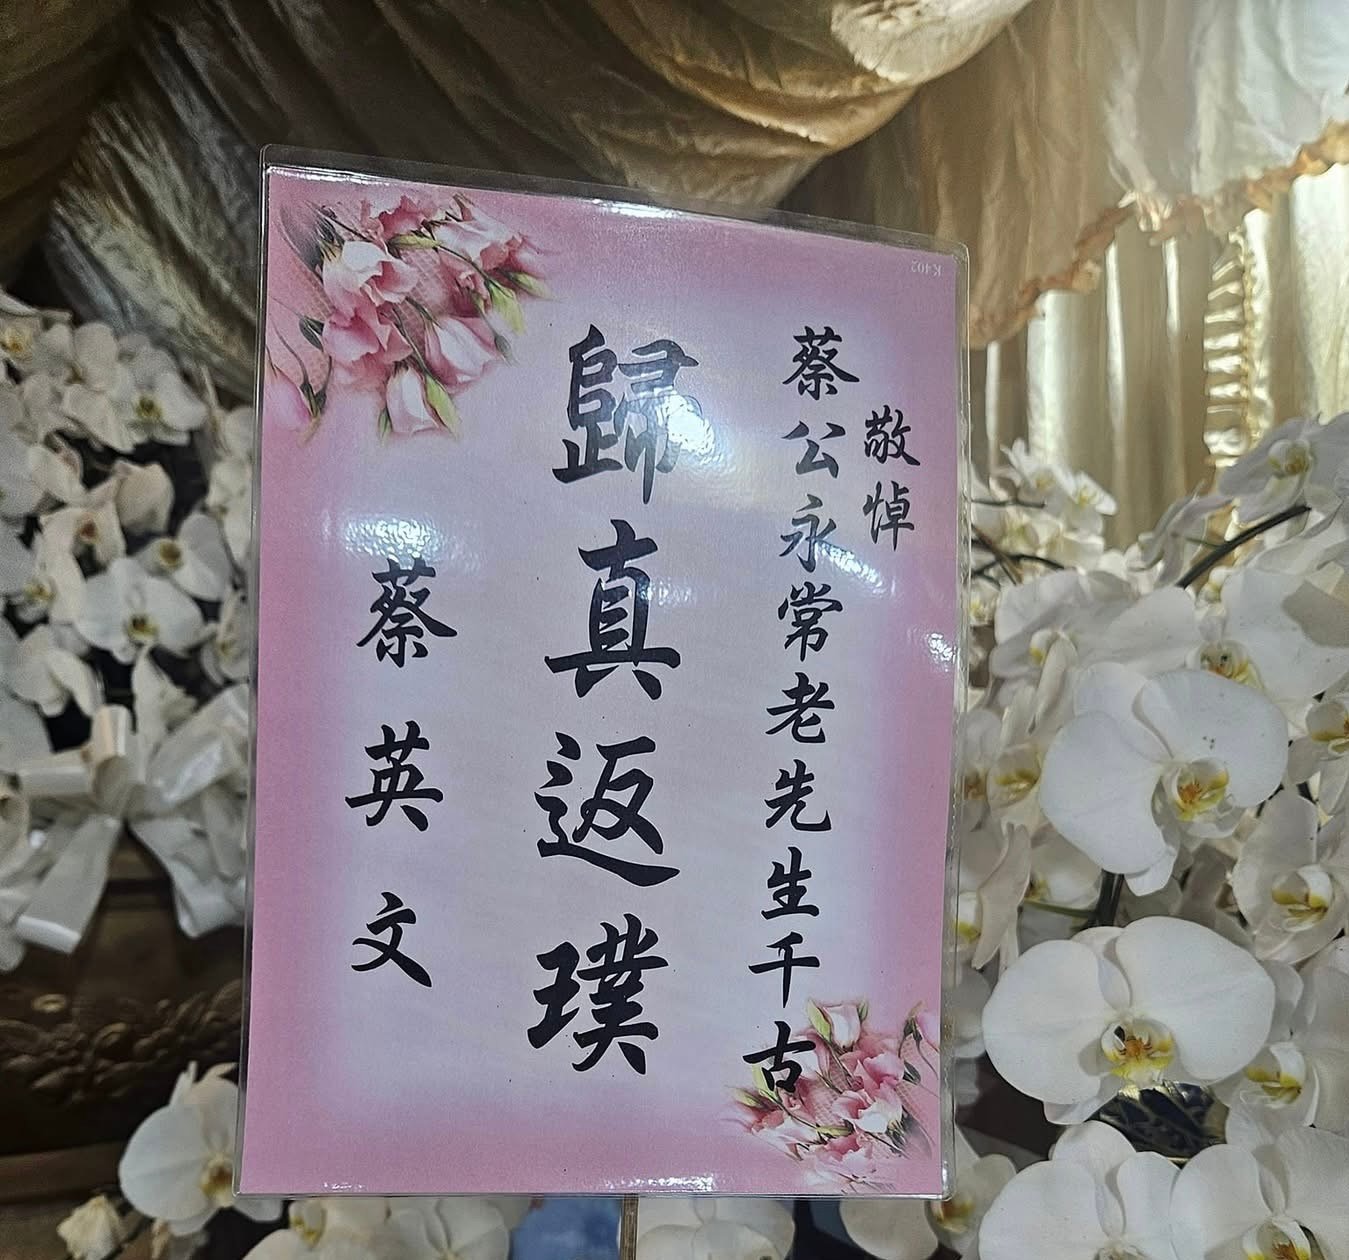 敬悼
蔡公永常老先生千古
歸真返璞
蔡英文
K402